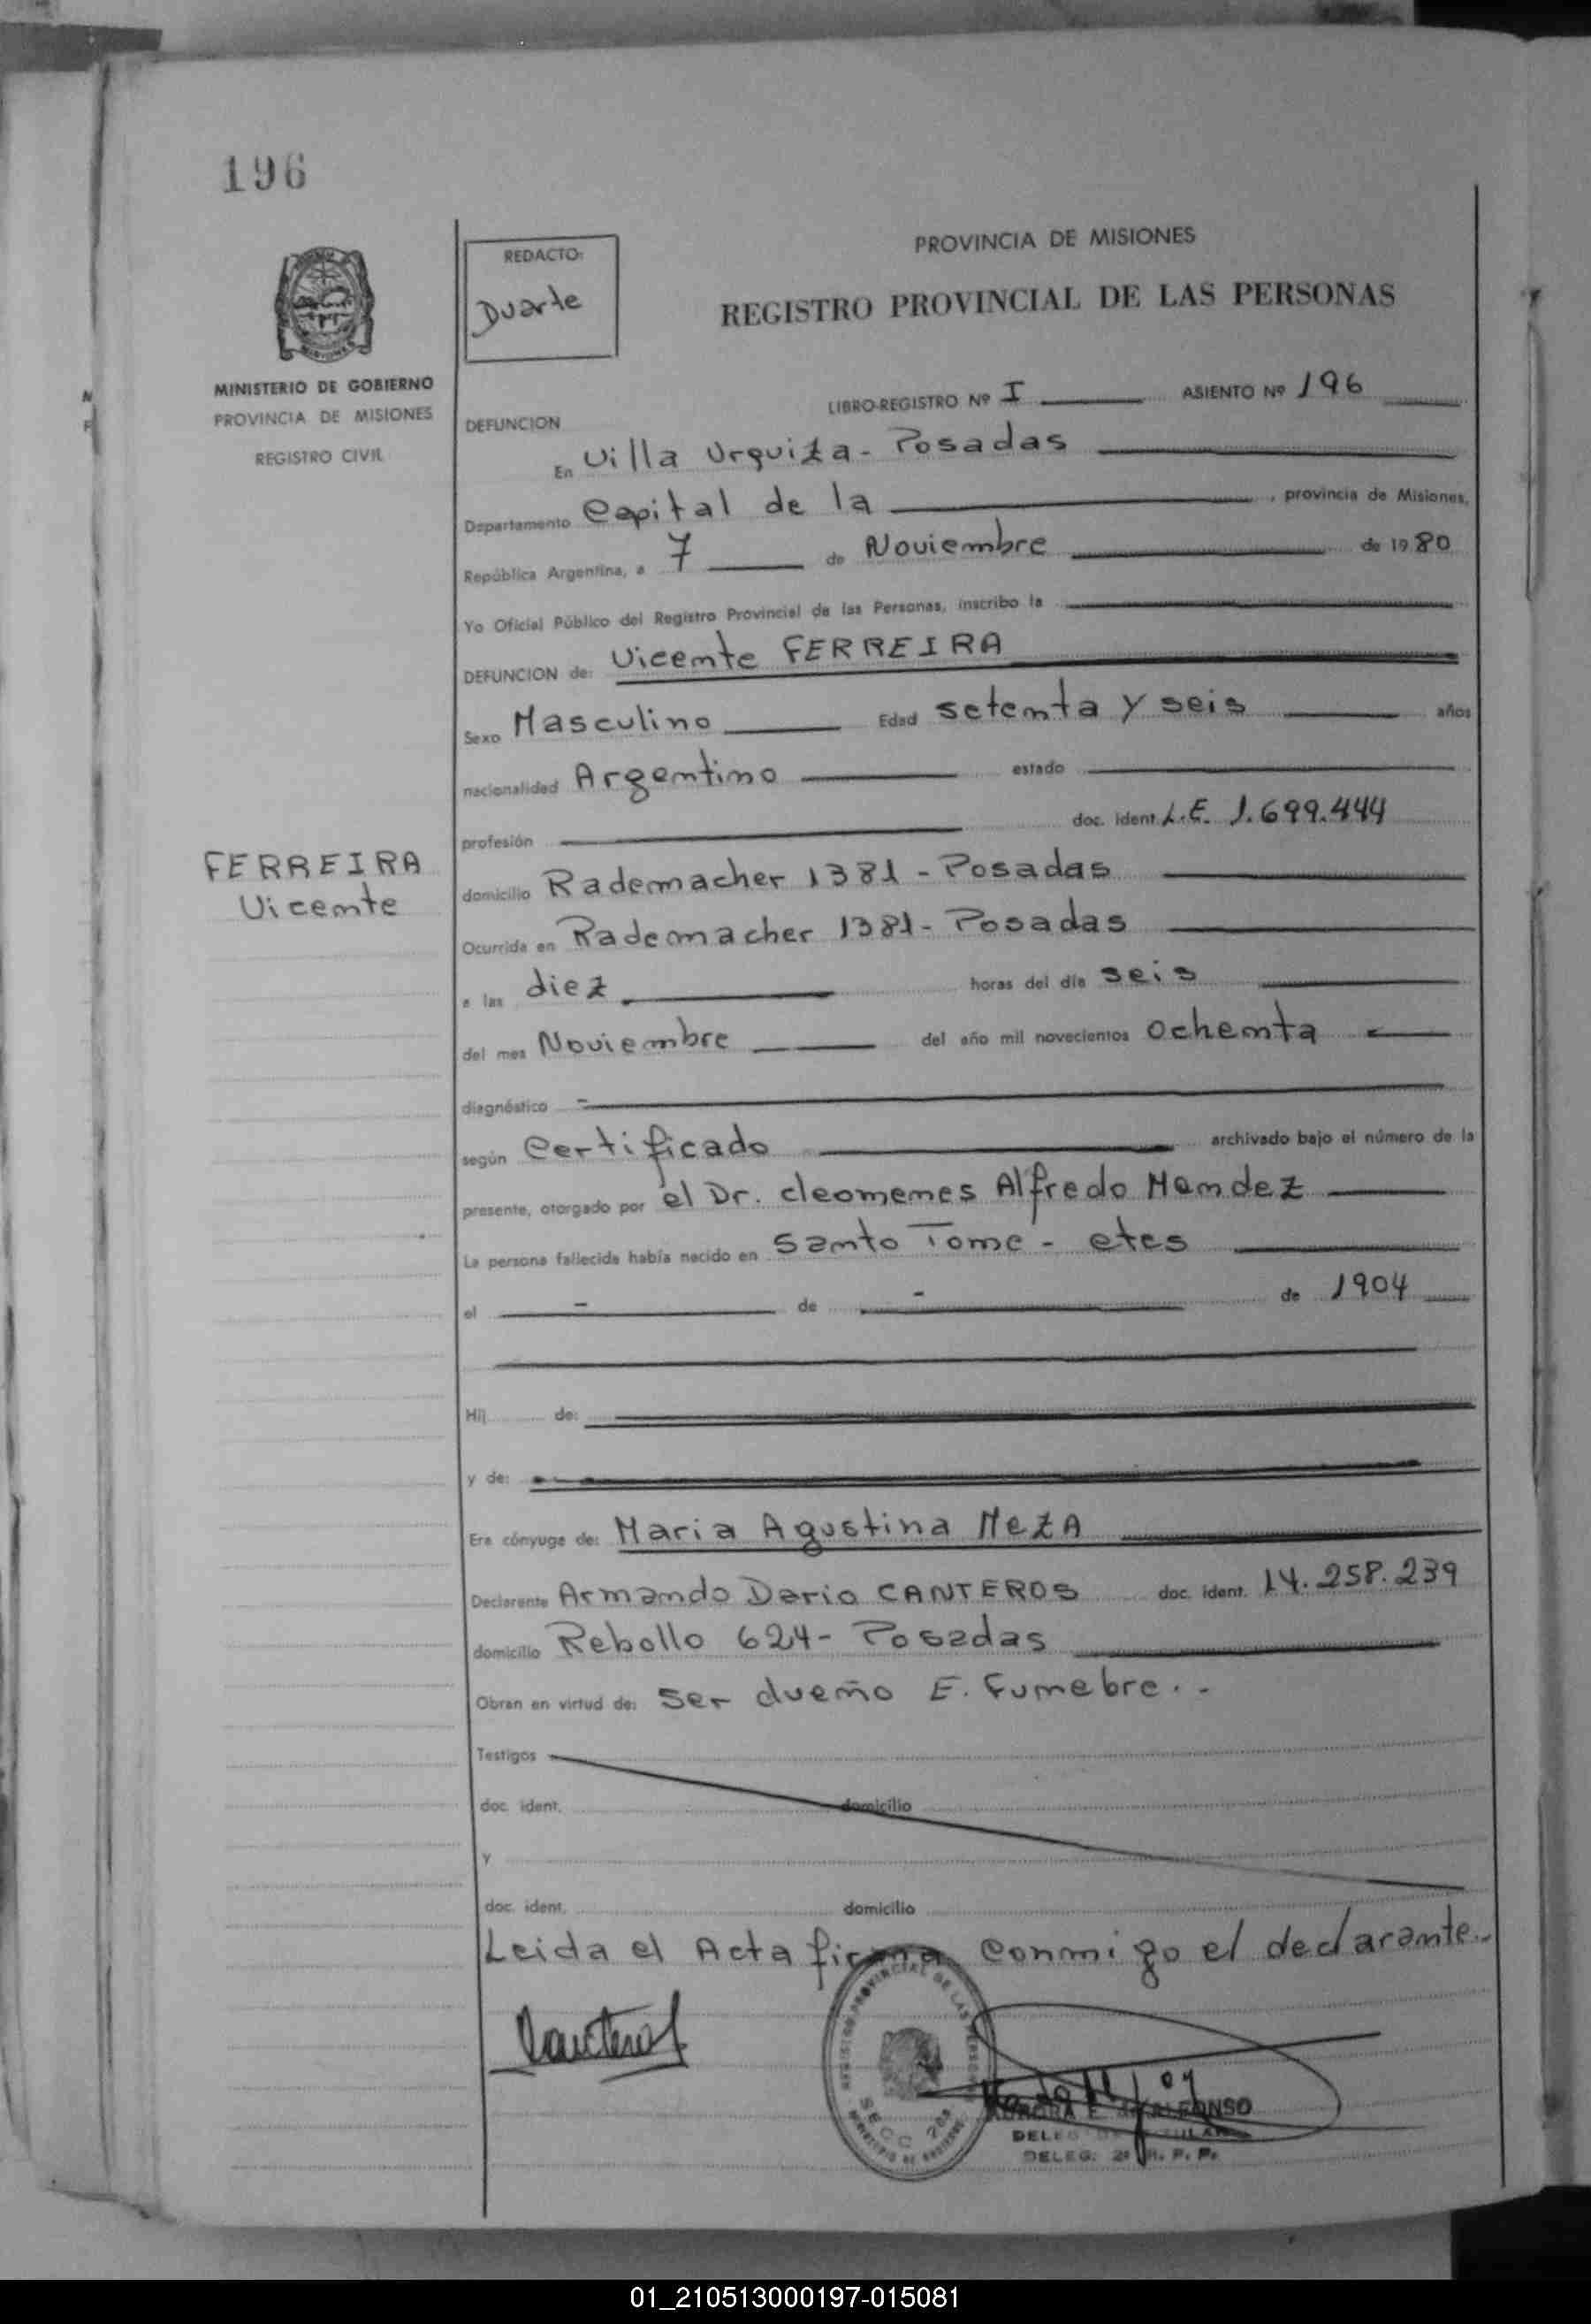 196
PROVINCIA DE MISIONES
REGISTRO PROVINCIAL DE LAS PERSONAS
REDACTO:
Duarte
MINISTERIO DE GOBIERNO
PROVINCIA DE MISIONES
REGISTRO CIVIL
LIBRO-REGISTRO Nº I ASIENTO Nº 196
DEFUNCION
En Villa Urquiza - Posadas
Departamento Capital de la , provincia de Misiones,
República Argentina, a 7 de Noviembre de 1980
Yo Oficial Público del Registro Provincial de las Personas, inscribo la
DEFUNCION de: Vicente FERREIRA
Sexo Masculino Edad setenta y seis años
nacionalidad Argentino estado
profesión doc. ident. L.E. 1.699.444
FERREIRA
Vicente
domicilio Rademacher 1381 - Posadas
Ocurrida en Rademacher 1381 - Posadas
a las diez horas del día seis
del mes Noviembre del año mil novecientos ochenta
diagnóstico -
según Certificado archivado bajo el número de la
presente, otorgado por el Dr. Cleomenes Alfredo Mendez
La persona fallecida había nacido en Santo Tome - ctes
el - de - de 1904
Hij de:
y de:
Era cónyuge de: Maria Agustina MezA
Declarante Armando Dario CANTEROS doc. ident. 14.258.239
domicilio Rebollo 624 - Posadas
Obran en virtud de: ser dueño E. Funebre. -
Testigos
doc. ident. domicilio
y
doc. ident. domicilio
Leida el Acta firma conmigo el declarante.-
REGISTRO PROVINCIAL DE LAS PERSONAS
SECC
ALFONSO
DELEG. 2ª R. P. P.
01_210513000197-015081